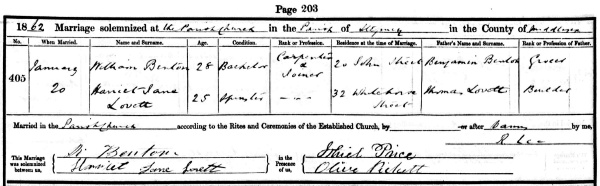 Page 203
1862 Marriage solemnized at the Parish Church in the Parish of Stepney in the County of Middlesex
When Married. Name and Surname. Age. Condition. Rank or Profession. Residence at the time of Marriage. Father's Name and Surname. Rank or Profession of Father.
405 January 20 William Benton 28 Bachelor Carpenter & Joiner 20 John Street Benjamin Benton Grocer
Harriet Jane Lovett 25 Spinster — — — 32 Whitehorse Street Thomas Lovett Builder
Married in the Parish Church according to the Rites and Ceremonies of the Established Church, by — or after Banns by me,
R. Lee
This Marriage was solemnized between us, W. Benton Harriet Jane Lovett in the Presence of us, Price Olive Rickett